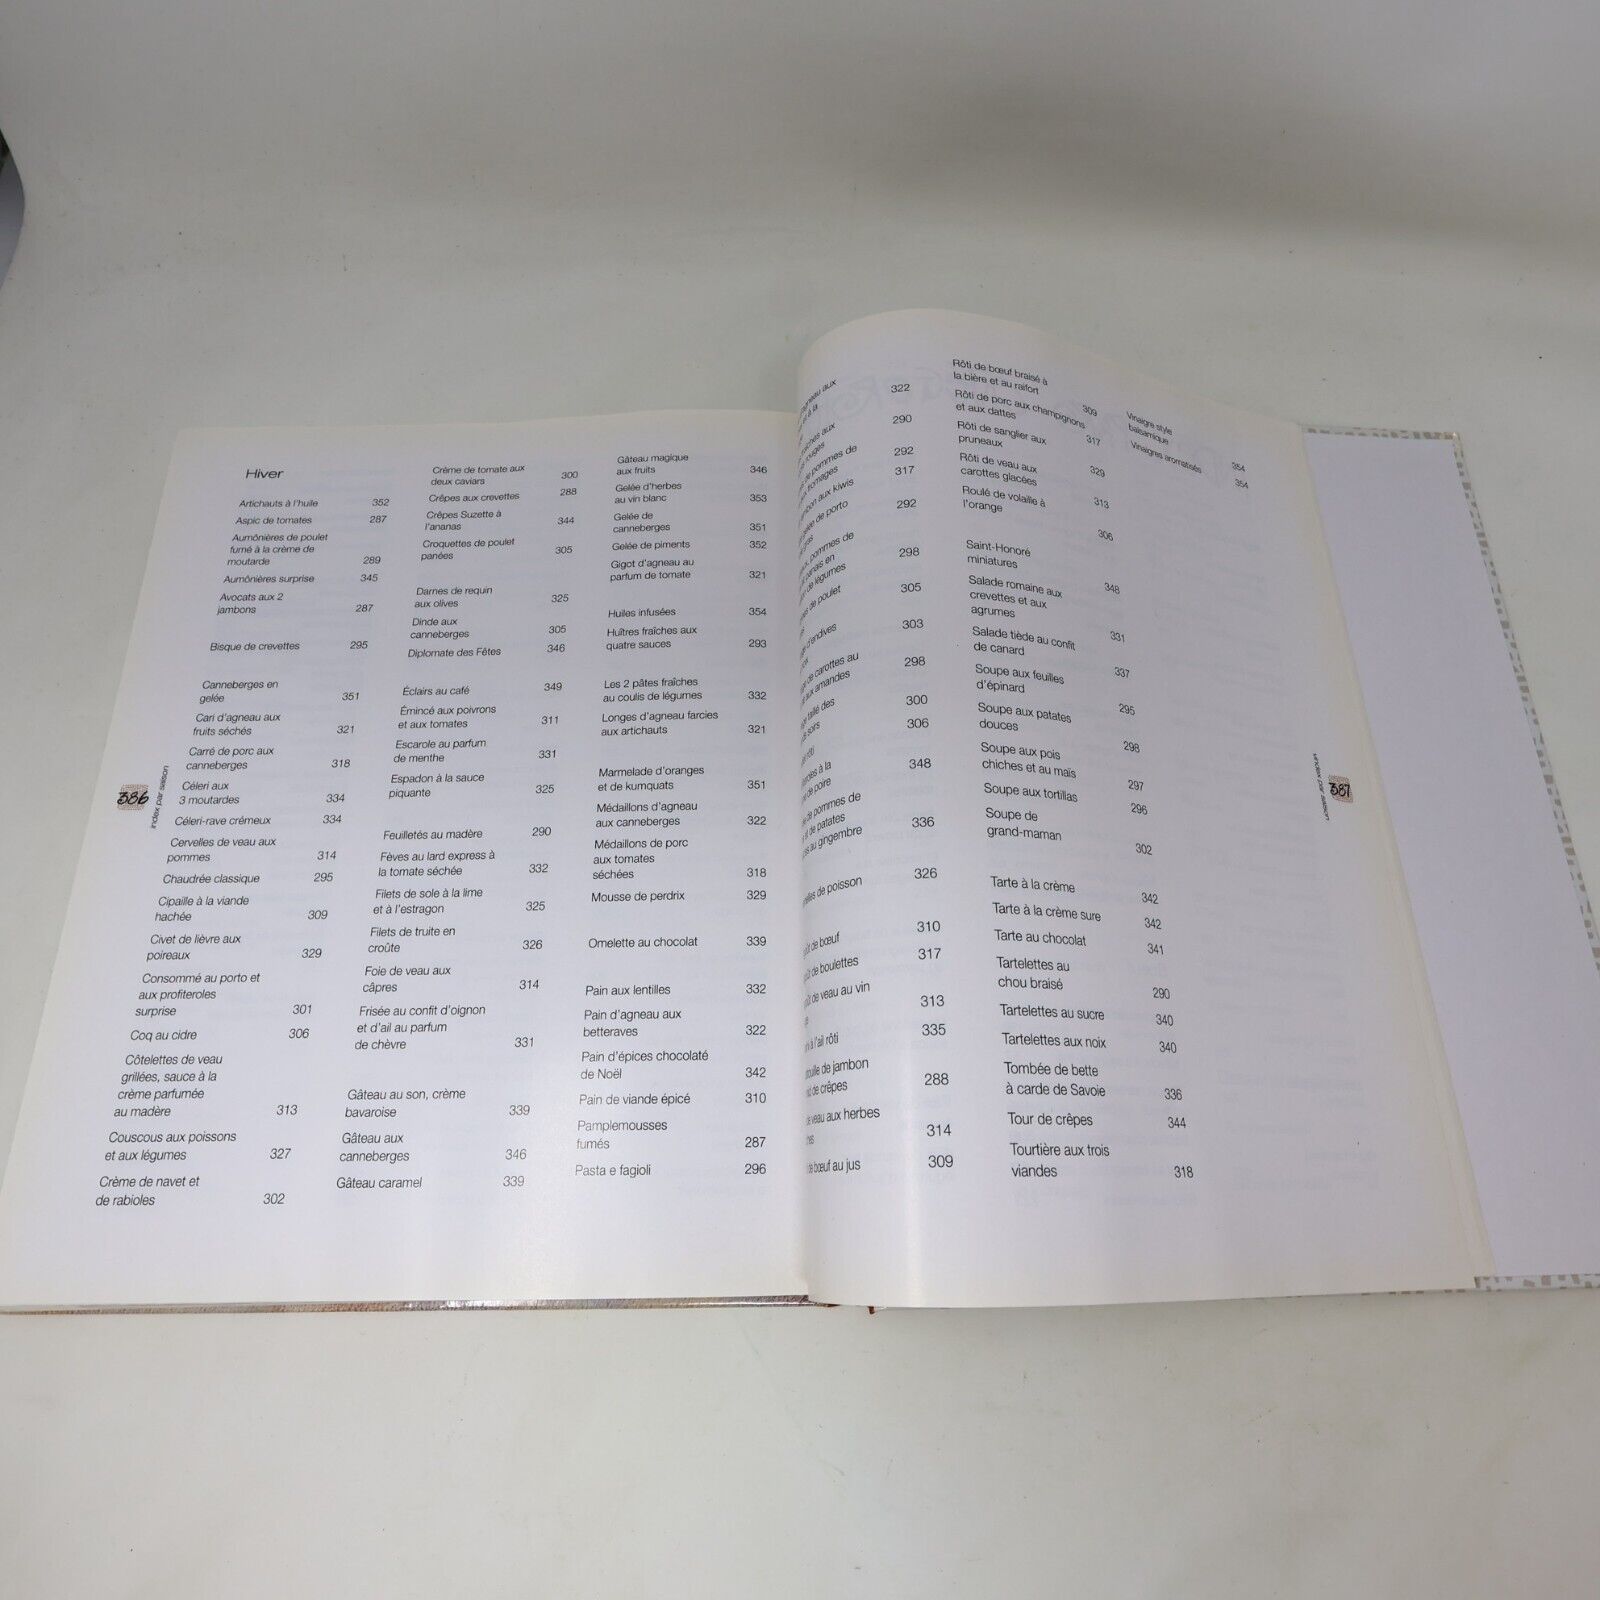 Hiver
Artichauts à l'huile 352
Aspic de tomates 287
Aumônières de poulet
fumé à la crème de
moutarde 289
Aumônières surprise 345
Avocats aux 2
jambons 287
Bisque de crevettes 295
Canneberges en
gelée 351
Cari d'agneau aux
fruits séchés 321
Carré de porc aux
canneberges 318
Céleri aux
3 moutardes 334
Céleri-rave crémeux 334
Cervelles de veau aux
pommes 314
Chaudrée classique 295
Cipaille à la viande
hachée 309
Civet de lièvre aux
poireaux 329
Consommé au porto et
aux profiteroles
surprise 301
Coq au cidre 306
Côtelettes de veau
grillées, sauce à la
crème parfumée
au madère 313
Couscous aux poissons
et aux légumes 327
Crème de navet et
de rabioles 302
386
index par saison
Crème de tomate aux
deux caviars 300
Crêpes aux crevettes 288
Crêpes Suzette à
l'ananas 344
Croquettes de poulet
panées 305
Darnes de requin
aux olives 325
Dinde aux
canneberges 305
Diplomate des Fêtes 346
Éclairs au café 349
Émincé aux poivrons
et aux tomates 311
Escarole au parfum
de menthe 331
Espadon à la sauce
piquante 325
Feuilletés au madère 290
Fèves au lard express à
la tomate séchée 332
Filets de sole à la lime
et à l'estragon 325
Filets de truite en
croûte 326
Foie de veau aux
câpres 314
Frisée au confit d'oignon
et d'ail au parfum
de chèvre 331
Gâteau au son, crème
bavaroise 339
Gâteau aux
canneberges 346
Gâteau caramel 339
Gâteau magique
aux fruits 346
Gelée d'herbes
au vin blanc 353
Gelée de
canneberges 351
Gelée de piments 352
Gigot d'agneau au
parfum de tomate 321
Huiles infusées 354
Huîtres fraîches aux
quatre sauces 293
Les 2 pâtes fraîches
au coulis de légumes 332
Longes d'agneau farcies
aux artichauts 321
Marmelade d'oranges
et de kumquats 351
Médaillons d'agneau
aux canneberges 322
Médaillons de porc
aux tomates
séchées 318
Mousse de perdrix 329
Omelette au chocolat 339
Pain aux lentilles 332
Pain d'agneau aux
betteraves 322
Pain d'épices chocolaté
de Noël 342
Pain de viande épicé 310
Pamplemousses
fumés 287
Pasta e fagioli 296
aux
à la 322
aux
rouges 290
de pommes de
fromages 292
aux kiwis 317
gelée de porto
gras 292
pommes de
panais en
de légumes 298
de poulet 305
d'endives 303
de carottes au
aux amandes 298
taillé des
soirs 300
rôti 306
à la
de poire 348
de pommes de
et de patates
au gingembre 336
de poisson 326
de bœuf 310
de boulettes 317
de veau au vin 313
à l'ail rôti 335
de jambon
de crêpes 288
de veau aux herbes 314
de bœuf au jus 309
Rôti de bœuf braisé à
la bière et au raifort 309
Rôti de porc aux champignons
et aux dattes 317
Rôti de sanglier aux
pruneaux 329
Rôti de veau aux
carottes glacées 313
Roulé de volaille à
l'orange 306
Saint-Honoré
miniatures 348
Salade romaine aux
crevettes et aux
agrumes 331
Salade tiède au confit
de canard 337
Soupe aux feuilles
d'épinard 295
Soupe aux patates
douces 298
Soupe aux pois
chiches et au maïs 297
Soupe aux tortillas 296
Soupe de
grand-maman 302
Tarte à la crème 342
Tarte à la crème sure 342
Tarte au chocolat 341
Tartelettes au
chou braisé 290
Tartelettes au sucre 340
Tartelettes aux noix 340
Tombée de bette
à carde de Savoie 336
Tour de crêpes 344
Tourtière aux trois
viandes 318
Vinaigre style
balsamique 354
Vinaigres aromatisés 354
index par saison
387